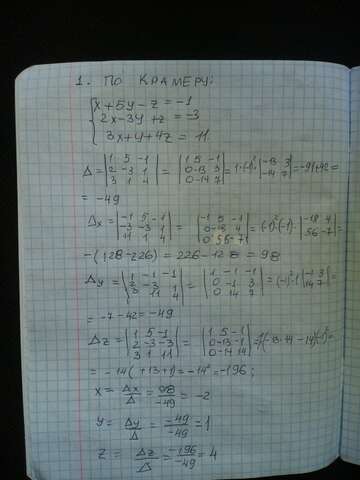 1. ПО КРАМЕРУ:
x+5y-z=-1
2x-3y+z=-3
3x+y+4z=11
Δ=|1 5 -1; 2 -3 1; 3 1 4|=|1 5 -1; 0 -13 3; 0 -14 7|=1·(-1)²·|-13 3; -14 7|=-91+42=
=-49
Δx=|-1 5 -1; -3 -3 1; 11 1 4|=|-1 5 -1; 0 -18 4; 0 56 -7|=(-1)²(-1)·|-18 4; 56 -7|=
-(128-226)=226-128=98
Δy=|1 -1 -1; 2 -3 1; 3 11 4|=|1 -1 -1; 0 -1 3; 0 14 7|=(-1)²·1|-1 3; 14 7|=
=-7-42=-49
Δz=|1 5 -1; 2 -3 -3; 3 1 11|=|1 5 -1; 0 -13 -1; 0 -14 14|=(-13·14-14)(-1)²=
=-14(+13+1)=-14²=-196;
x=Δx/Δ=98/-49=-2
y=Δy/Δ=-49/-49=1
z=Δz/Δ=-196/-49=4